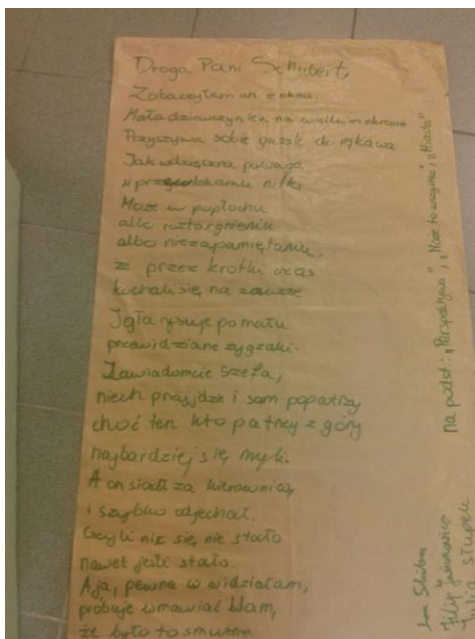 Droga Pani Schubert,
Zobaczyłam ich z okna.
Mała dziewczynka na wielkim ekranie
Przyszywa sobie guzik do rękawa
Jak wdzięczna powaga
w przewlekaniu nitki
Może w popłochu
albo roztargnieniu
albo niezapamiętaniu,
że przez krótki czas
kochali się na zawsze
Igła rysuje pomału
przewidziane zygzaki.
Zawiadomcie szefa,
niech przyjdzie i sam popatrzy
choć ten kto patrzy z góry
najbardziej się myli.
A on siadł za kierownicą
i szybko odjechał.
Czyli nic się nie stało
nawet jeśli stało.
A ja, pewna co widziałam,
próbuję wmawiać Wam,
że było to smutne
na podst.: "Perspektywa", "Może to wszystko", "Miasta"
Jan
Filip
Julia